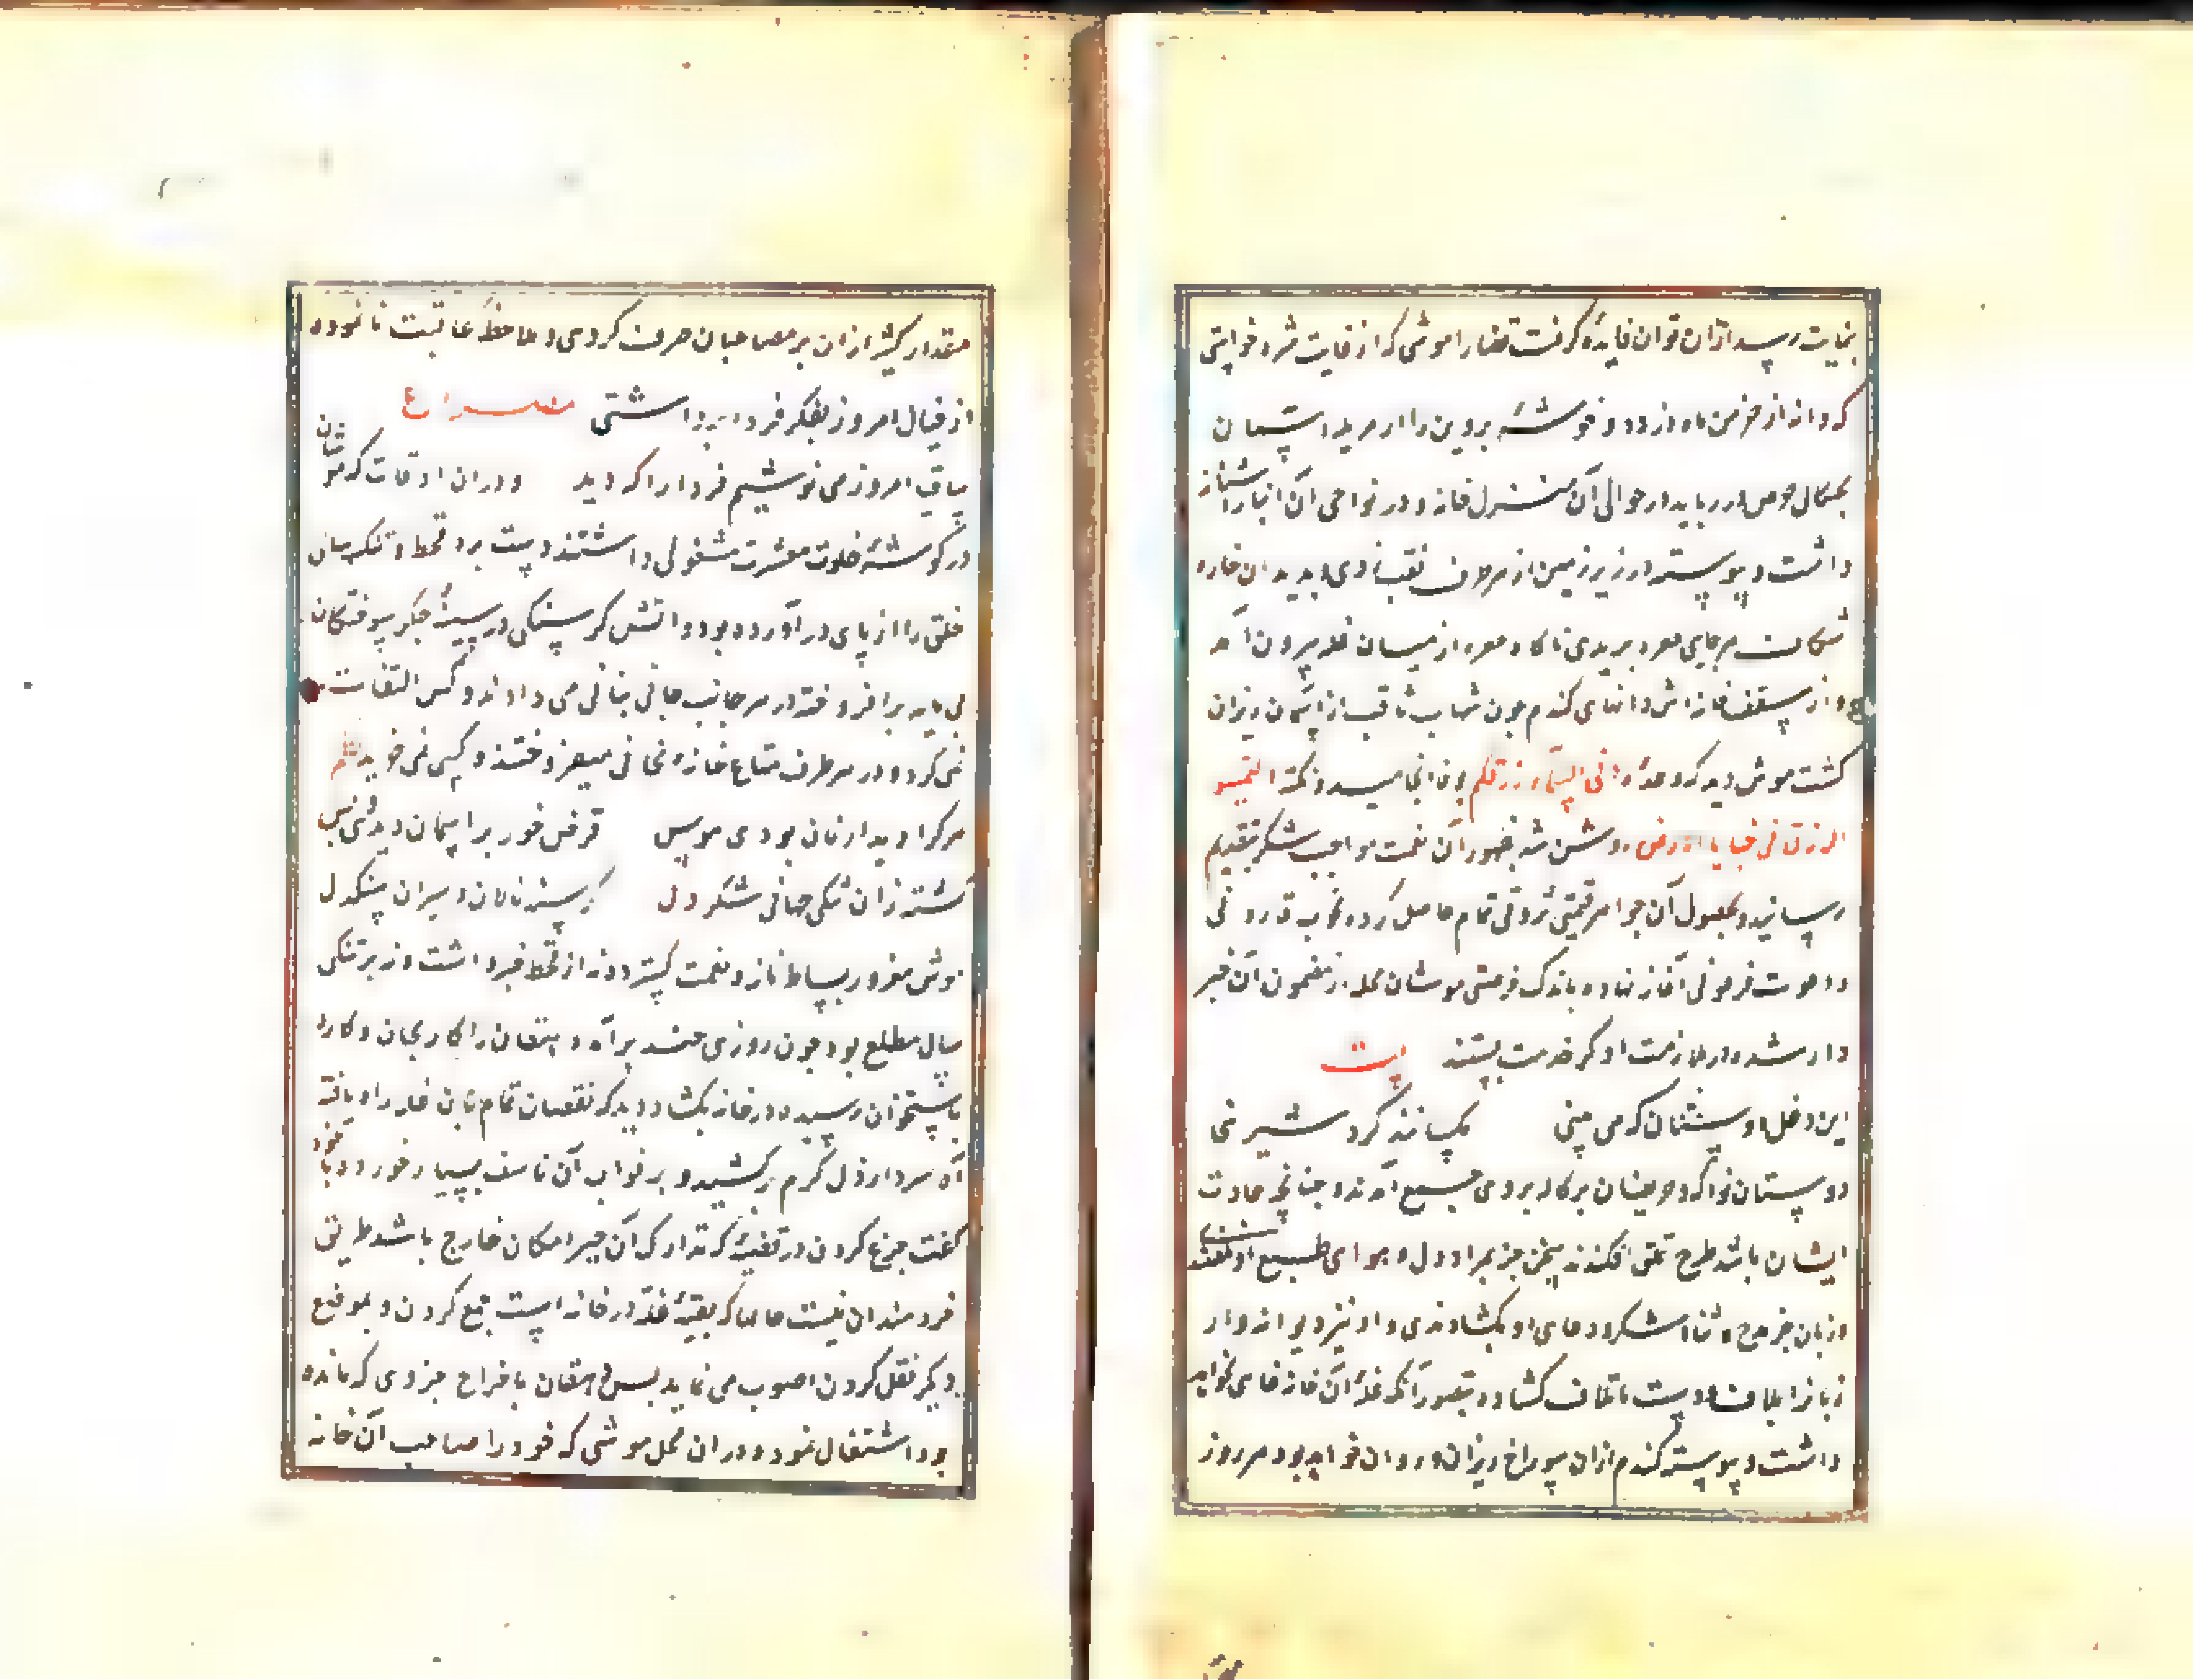 بغایت رسد ازان توان فایده گرفت قضارا موشی که از غایت شره خواستی
که دانه از خرمن ماه دزدد و خوشهٔ پروین را از مزرعه آسمان
بچنگال حرص در رباید در حوالی آن منزل خانه و در نواحی آن انبار آشیانه
داشت و پیوسته در زیر زمین از هر طرف نقب زدی و بدندان خاره
شکاف هر جای حفره بریدی ناگاه حفره از میان غله بیرون آمد
و از سقف خانه اش دانهای گندم چون شهاب ثاقب از آسمان ریزان
گشت موش دید که وعدهٔ و فی السماء رزقکم بوفا انجامید و نکته التمسوا
الرزق فی خبایا الارض روشن شد بظهور آن نعمت مواجب شکر بتقدیم
رسانید و بحصول آن جواهر قیمتی ثروتی تمام حاصل کرده نخوت قارونی
و دعوت فرعونی آغاز نهاد و باندک فرصتی موشان محله از مضمون آن خبر
دار شده در ملازمت او کمر خدمت بستند بیت
این دغل دوستان که می بینی مگسانند گرد شیرینی
دوستان نواله و حریفان پیاله بروی جمع آمدند و چنانچه عادت
ایشان باشد طرح تملق افکندند سخن جز بمراد دل و هوای طبع او نگفتندی
و زبان جز بمدح و ثنا و شکر و دعای او نگشادندی و او نیز دیوانه وار
زبان بلاف و دست باتلاف گشاده بتصور آنکه غلهٔ آن خانه نهایتی نخواهد
داشت و پیوسته گندم ازان سوراخ ریزان و روان خواهد بود هر روز
مقدار کثیر ازان بر مصاحبان صرف کردی و ملاحظهٔ عاقبت نانموده
از خیال امروز بفکر فردا نپرداشتی مصراع
ساقی امروز می نوشیم فردا را که دید و دران اوقات که موشان
در گوشهٔ خلوت بعشرت مشغولی داشتند دست برد قحط و تنگسالی
خلق را از پای در آورده بود و آتش گرسنگی در سینهٔ جگر سوختگان
بی مایه برافروخته در هر جانب جانی بنانی می دادند و کس التفات
نمی کرد و در هر طرف متاع خانه بخانی میفروختند و کسی نمی خرید شعر
هرکرا دیدار نان بودی هوس قرص خور بر آسمان دیدی و بس
گشته زان تنگی جهانی تنگ دل گرسنه نالان و سیران سنگدل
موش مغرور بساط ناز و نعمت گسترده نه از قحط خبر داشت و نه بر تنگی
سال مطلع بود چون روزی چند برآمد دهقان را کار بجان و کارد
باستخوان رسیده در خانه بگشاد دید که نقصان تمام بآن غله راه یافته
آه سرد از دل گرم برکشید و بر فوات آن تاسف بسیار خورد و با خود
گفت جزع کردن در قضیهٔ که تدارک آن از حیز امکان خارج باشد طریق
خردمندان نیست حالا که بقیهٔ غله در خانه است جمع کردن و بموضع
دیگر نقل کردن اصوب می نماید پس دهقان باخراج جزوی که مانده
بود اشتغال نمود و دران محل موشی که خود را صاحب آن خانه